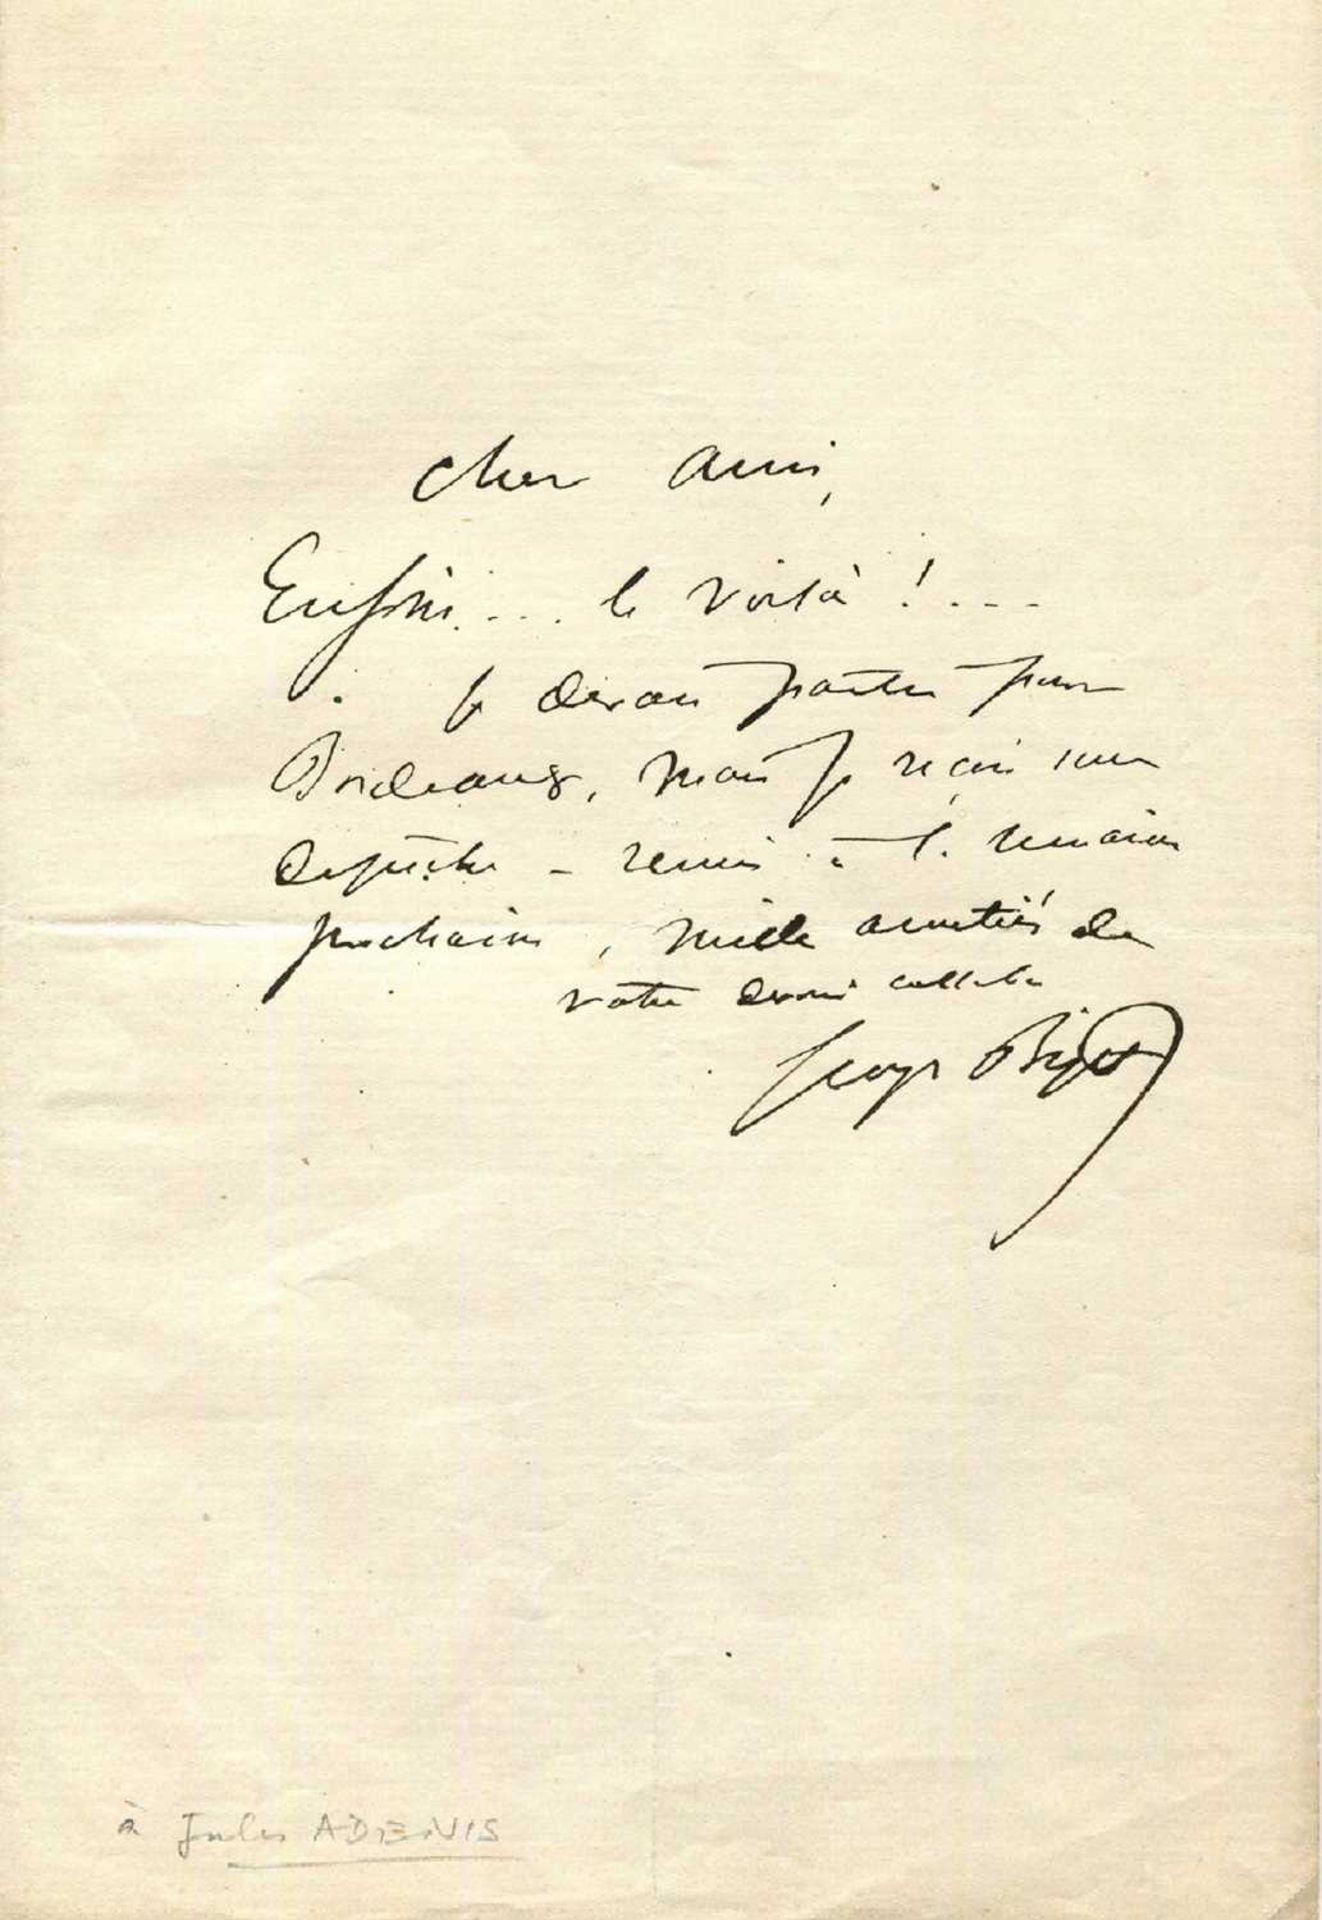 Cher ami,
Enfin.... le voilà !....
je devais partir pour
Bordeaux, mais je reçois une
dépêche - remis à la semaine
prochaine, mille amitiés de
votre collabo
Georges Bizet
à Jules ADENIS